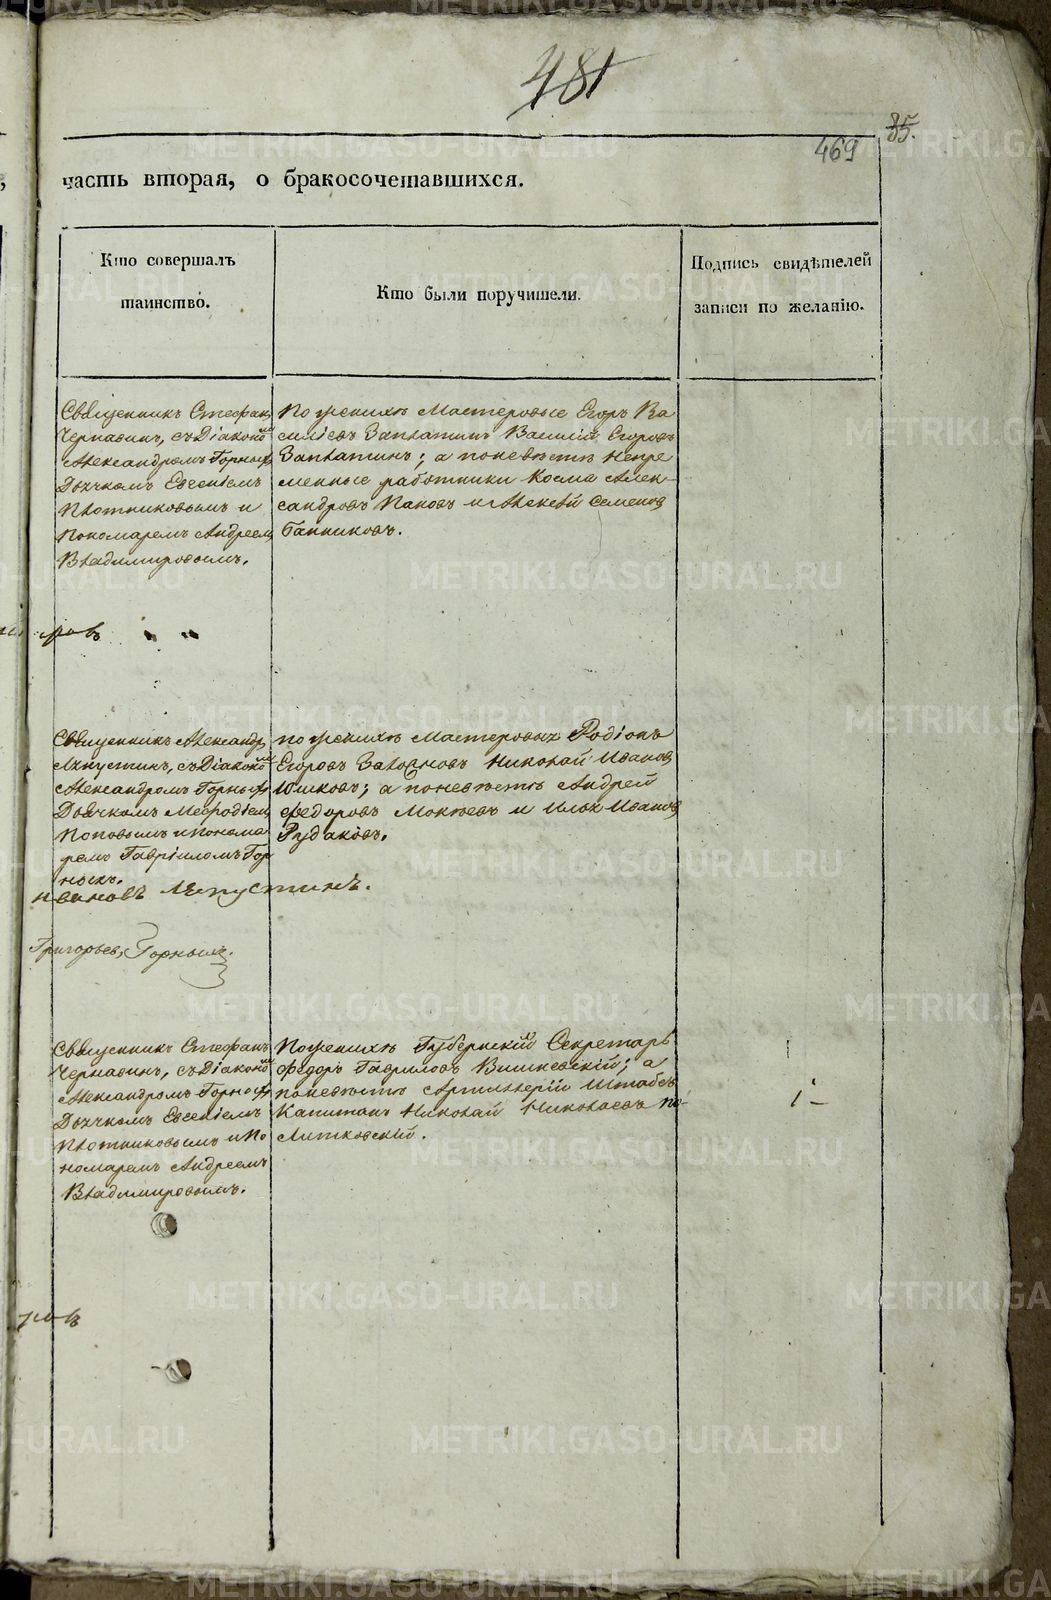 481
469
85.
часть вторая, о бракосочетавшихся.
Кто совершалъ
таинство.
Кто были поручители.
Подпись свидѣтелей
записи по желанію.
Священникъ Стефанъ
Чернавинъ, съ Діакономъ
Александромъ Горныхъ
Дьячкомъ Евгеніемъ
Плотниковымъ и
Пономаремъ Андреемъ
Владимировымъ.
По женихѣ Мастеровые Егоръ Ва
сильевъ Заплатинъ Василій Егоровъ
Заплатинъ; а по невѣстѣ Непре
менные работники Косма Алек-
сандровъ Пановъ и Алексѣй Семеновъ
Банниковъ.
Священникъ Александръ
Ляпустинъ, съ Діакономъ
Александромъ Горныхъ
Дьячкомъ Мефодіемъ
Поповымъ и Понома
ремъ Гавріиломъ Гор
ныхъ.
по женихѣ Мастеровые Родіонъ
Егоровъ Николай Ивановъ
Юшковъ; а по невѣстѣ Андрей
Федоровъ Мокѣевъ и Илья Ивановъ
Рудаковъ.
Ивановъ Ляпустинъ.
Григорьевъ Горныхъ.
Священникъ Стефанъ
Чернавинъ, съ Діакономъ
Александромъ Горныхъ
Дьячкомъ Евгеніемъ
Плотниковымъ и По
номаремъ Андреемъ
Владимировымъ.
По женихѣ Губернскій Секретарь
Федоръ Гавриловъ Вишневскій; а
по невѣстѣ Артиллеріи Штабсъ
Капитанъ Николай Николаевъ По-
литковскій.
METRIKI.GASO-URAL.RU